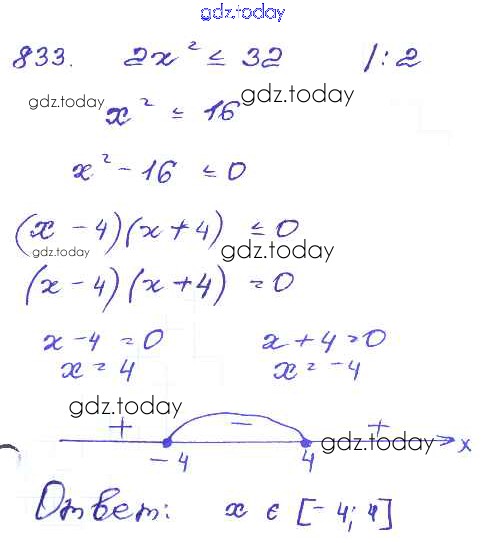 gdz.today
833. 2x² ≤ 32 |:2
gdz.today x² ≤ 16 gdz.today
x² - 16 ≤ 0
(x - 4)(x + 4) ≤ 0
gdz.today gdz.today
(x - 4)(x + 4) = 0
x - 4 = 0 x + 4 = 0
x = 4 x = -4
gdz.today
+ - +
gdz.today x
-4 4
Ответ: x ∈ [-4; 4]